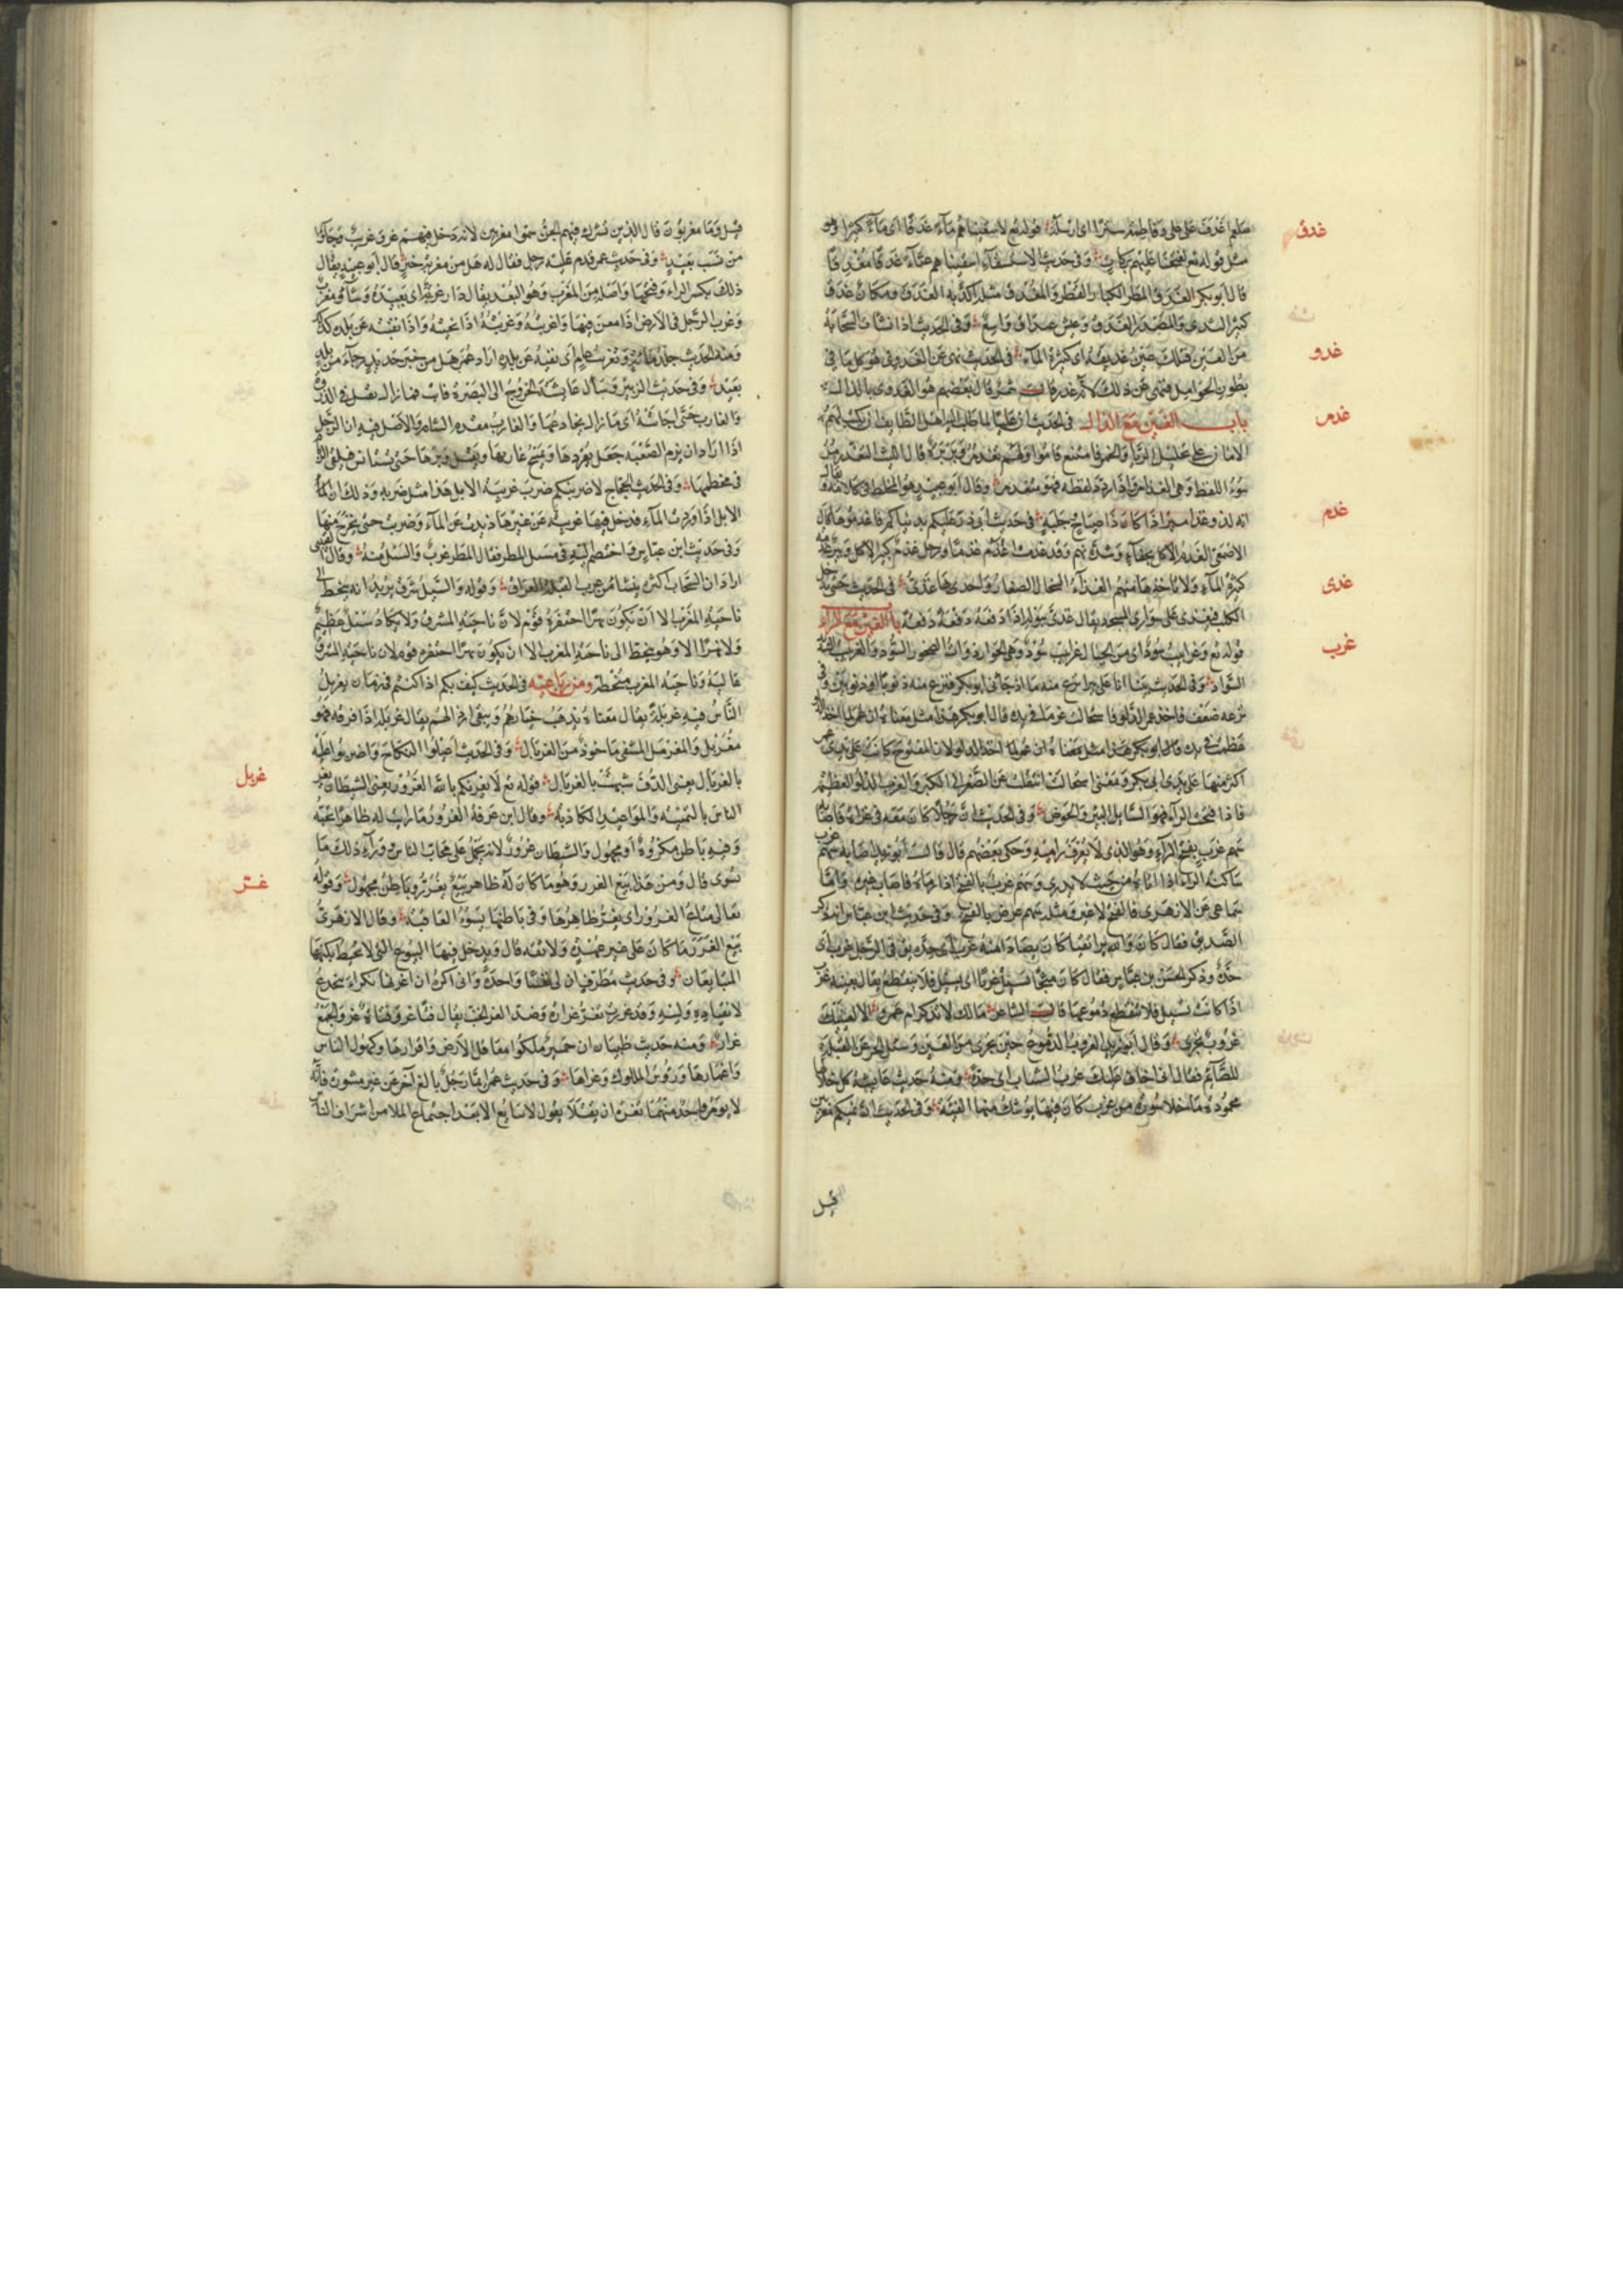 غدق
صلعم اغدف على على وفاطمة سترا اى ارسله قوله تع لاسقيناهم ماء غدقا اى ماء كثيرا وهو
مثل قوله تع لفتحنا عليهم بركات وفى حديث الاستسقاء اسقنا غدقا مغدقا
قال ابو بكر الغدق المطر الكبار القطر والمغدق مثله اكد به الغدق ومكان غدق
كثير الندى والمصدر الغدق وعيش غيداق واسع وفى الحديث اذا نشات السحابة
غدو
من العين فتلك عين غديقة اى كثيرة الماء فى الحديث نهى عن الغدوى هو كل ما فى
بطون الحوامل فنهى عن ذلك لانه غرر قال شمر قال بعضهم هو الغذوى بالذال
غذمر
باب الغين مع الذال فى الحديث ان عليا لما طلب اليه اهل الطائف ان يكتب لهم
الامان على تحليل الربا والخمر فامتنع قاموا ولهم تغذمر وبربرة قال الليث التغذمر
سوء اللفظ وهى الغذامر واذا ردد لفظه فهو متغذمر وقال ابو عبيد هو المخلط فى كلامه يقال
غذم
انه لذو غذامير اذا كان ذا صياح وجلبة فى حديث ابى ذر عليكم بدنياكم فاغذموها قال
الاصمعى الغذم الاكل بجفاء وشدة نهم وقد غذمت اغذم غذما ورجل غذم كثير الاكل وبئر غذمة
غذى
كثيرة الماء ولا تاخذها منهم الغذاء السخال الصغار واحدها غذى فى الحديث حتى يدخل
الكلب فيغذى على سوارى المسجد يقال غذى ببوله اذا دفعه دفعة دفعة باب الغين مع الراء
غرب
قوله تع وغرابيب سود اى من الجبال غرابيب سود وهى الحرار ذوات الصخور السود والغربيب الشديد
السواد وفى الحديث بينا انا على بئر انزع منها اذ جاءنى ابو بكر فنزع منه ذنوبا او ذنوبين وفى
نزعه ضعف فاخذ عمر الدلو فاستحالت غربا فى يده قال ابو بكر هذا مثل معناه ان عمر لما اخذ الدلو
عظمت فى يده
اكثر منها على يدى ابى بكر ومعنى استحالت انقلبت عن الصغر الى الكبر والغرب الدلو العظيم
فاذا فتحت الراء فهو السائل بين البئر والحوض وفى الحديث ان رجلا كان معه فى غزاة فاصابه
سهم غرب بفتح الراء وهو الذى لا يعرف راميه وحكى بعضهم قال قال ابو زيد اصابه سهم غرب
ساكنة الراء اذا اتاه من حيث لا يدرى وسهم غرب بالفتح اذا رماه فاصاب غيره واما
سماعى عن الازهرى فالفتح لا غير ومثله سهم عرض بالفتح وفى حديث ابن عباس انه ذكر
الصديق فقال كان والله برا تقيا كان يصادا منه غرب اى حدة يق فى الرجل غرب اى
حدة وذكر الحسن بن عباس فقال كان مثجا يسيل غربا اى يسيل فلا ينقطع يقال بعينه غرب
اذا كانت تسيل فلا تنقطع دموعها قال الشاعر مالك لا تذكر ام عمرو الا لعينيك
غروب تجرى وقال ابو زيد الغروب الدموع حين يجرى من العين وسئل الحسن عن القبلة
للصائم فقال انى اخاف عليك غرب الشباب اى حدة ومنه حديث عائشة كل خلالها
محمودة ما خلا سورة من غرب كان فيها يوشك منها الفيئة وفى الحديث ان فيكم مغربين
قيل
قيل وما مغربون قال الذين تشرك فيهم الجن سموا مغربين لانه دخل فيهم عرق غريب وجاؤا
من نسب بعيد وفى حديث عمر قدم عليه رجل فقال له هل من مغربة خبر قال ابو عبيد يقال
ذلك بكسر الراء وفتحها واصله من الغرب وهو البعد يقال دار غربة اى بعيدة وشأو مغرب
وغرب الرجل فى الارض اذا امعن فيها واغربته وغربته اذا نحيته واذا نفيته عن بلده كذلك
ومنه الحديث جلد مائة وتغريب عام اى نفيه عن بلده اراد عمر هل من خبر جديد جاء من بلد
بعيد وفى حديث الزبير وسأل عايشة الخروج الى البصرة فابت فما زال يفتل فى الذروة
والغارب حتى اجابته اى ما زال يخادعها والغارب مقدم السنام والاصل فيه ان الرجل
اذا اراد ان يزم الصعبة جعل يقردها ويمسح غاربها ويفتل وبرها حتى يستانس فيلقى الزمام
فى مخطمها وفى حديث الحجاج لاضربنكم ضرب غريبة الابل هذا مثل ضربه وذلك ان
الابل اذا وردت الماء فدخل فيها غريبة عن غيرها ذيدت عن الماء وضربت حتى يخرج منها
وفى حديث ابن عباس واختصم اليه فى مسيل المطر فقال المطر غرب والسيل شرق وقال القتيبى
اراد ان السحاب اكثره ينشأ من غرب القبلة العراق وقوله والسيل شرق يريد انه ينحط الى
ناحية المغرب الا ان تكون نهرا احتفره قوم لان ناحية المشرق ولا يكاد سيل عظيم
ولا نهر الا وهو ينحط الى ناحية المغرب الا ان يكون نهرا احتفره قوم لان ناحية المشرق
عالية وناحية المغرب منحطة ومن رباعيه فى الحديث كيف بكم اذا كنتم فى زمان يغربل
الناس فيه غربلة يقال معناه يذهب خيارهم ويبقى ارذالهم يقال غربله اذا فرقه فهو
غربل
مغربل والمغربل المنتقى ماخوذ من الغربال وفى الحديث اعلنوا النكاح واضربوا عليه
بالغربال يعنى الدف شبهه بالغربال قوله تع لا يغرنكم بالله الغرور يعنى الشيطان يغر
الناس بالتمنية والمواعيد الكاذبة وقال ابن عرفة الغرور ما رايت له ظاهرا تحبه
وفيه باطن مكروه او مجهول والشيطان غرور لانه يحمل على محاب الناس ووراء ذلك ما
غرر
يسوى قال ومن هذا بيع الغرر وهو ما كان له ظاهر بيع يغر وباطن مجهول وقوله
تعالى متاع الغرور اى يغر ظاهرها وفى باطنها سوء العاقبة وقال الازهرى
بيع الغرر ما كان على غير عهدة ولا ثقة قال ويدخل فيها البيوع التى لا يحيط بكنهها
المتبايعان وفى حديث مطرف ان لى نفسا واحدة وانى اكره ان اغرر بها
لانقياده ولينه وقد غررت تغر غرارة وضد الغر الخب يقال فتى غر وفتاة غر والجمع
غرار ومنه حديث ظبيان ان حمير ملكوا معاقل الارض وقرارها وكهول الناس
واغمارها ورؤس الملوك وغرارها وفى حديث عمر ايما رجل بايع آخر عن غير مشورة فانه
لا يؤمر واحد منهما تغرة ان يقتلا يقول لا يبايع الا بعد اجتماع الملا من اشراف الناس